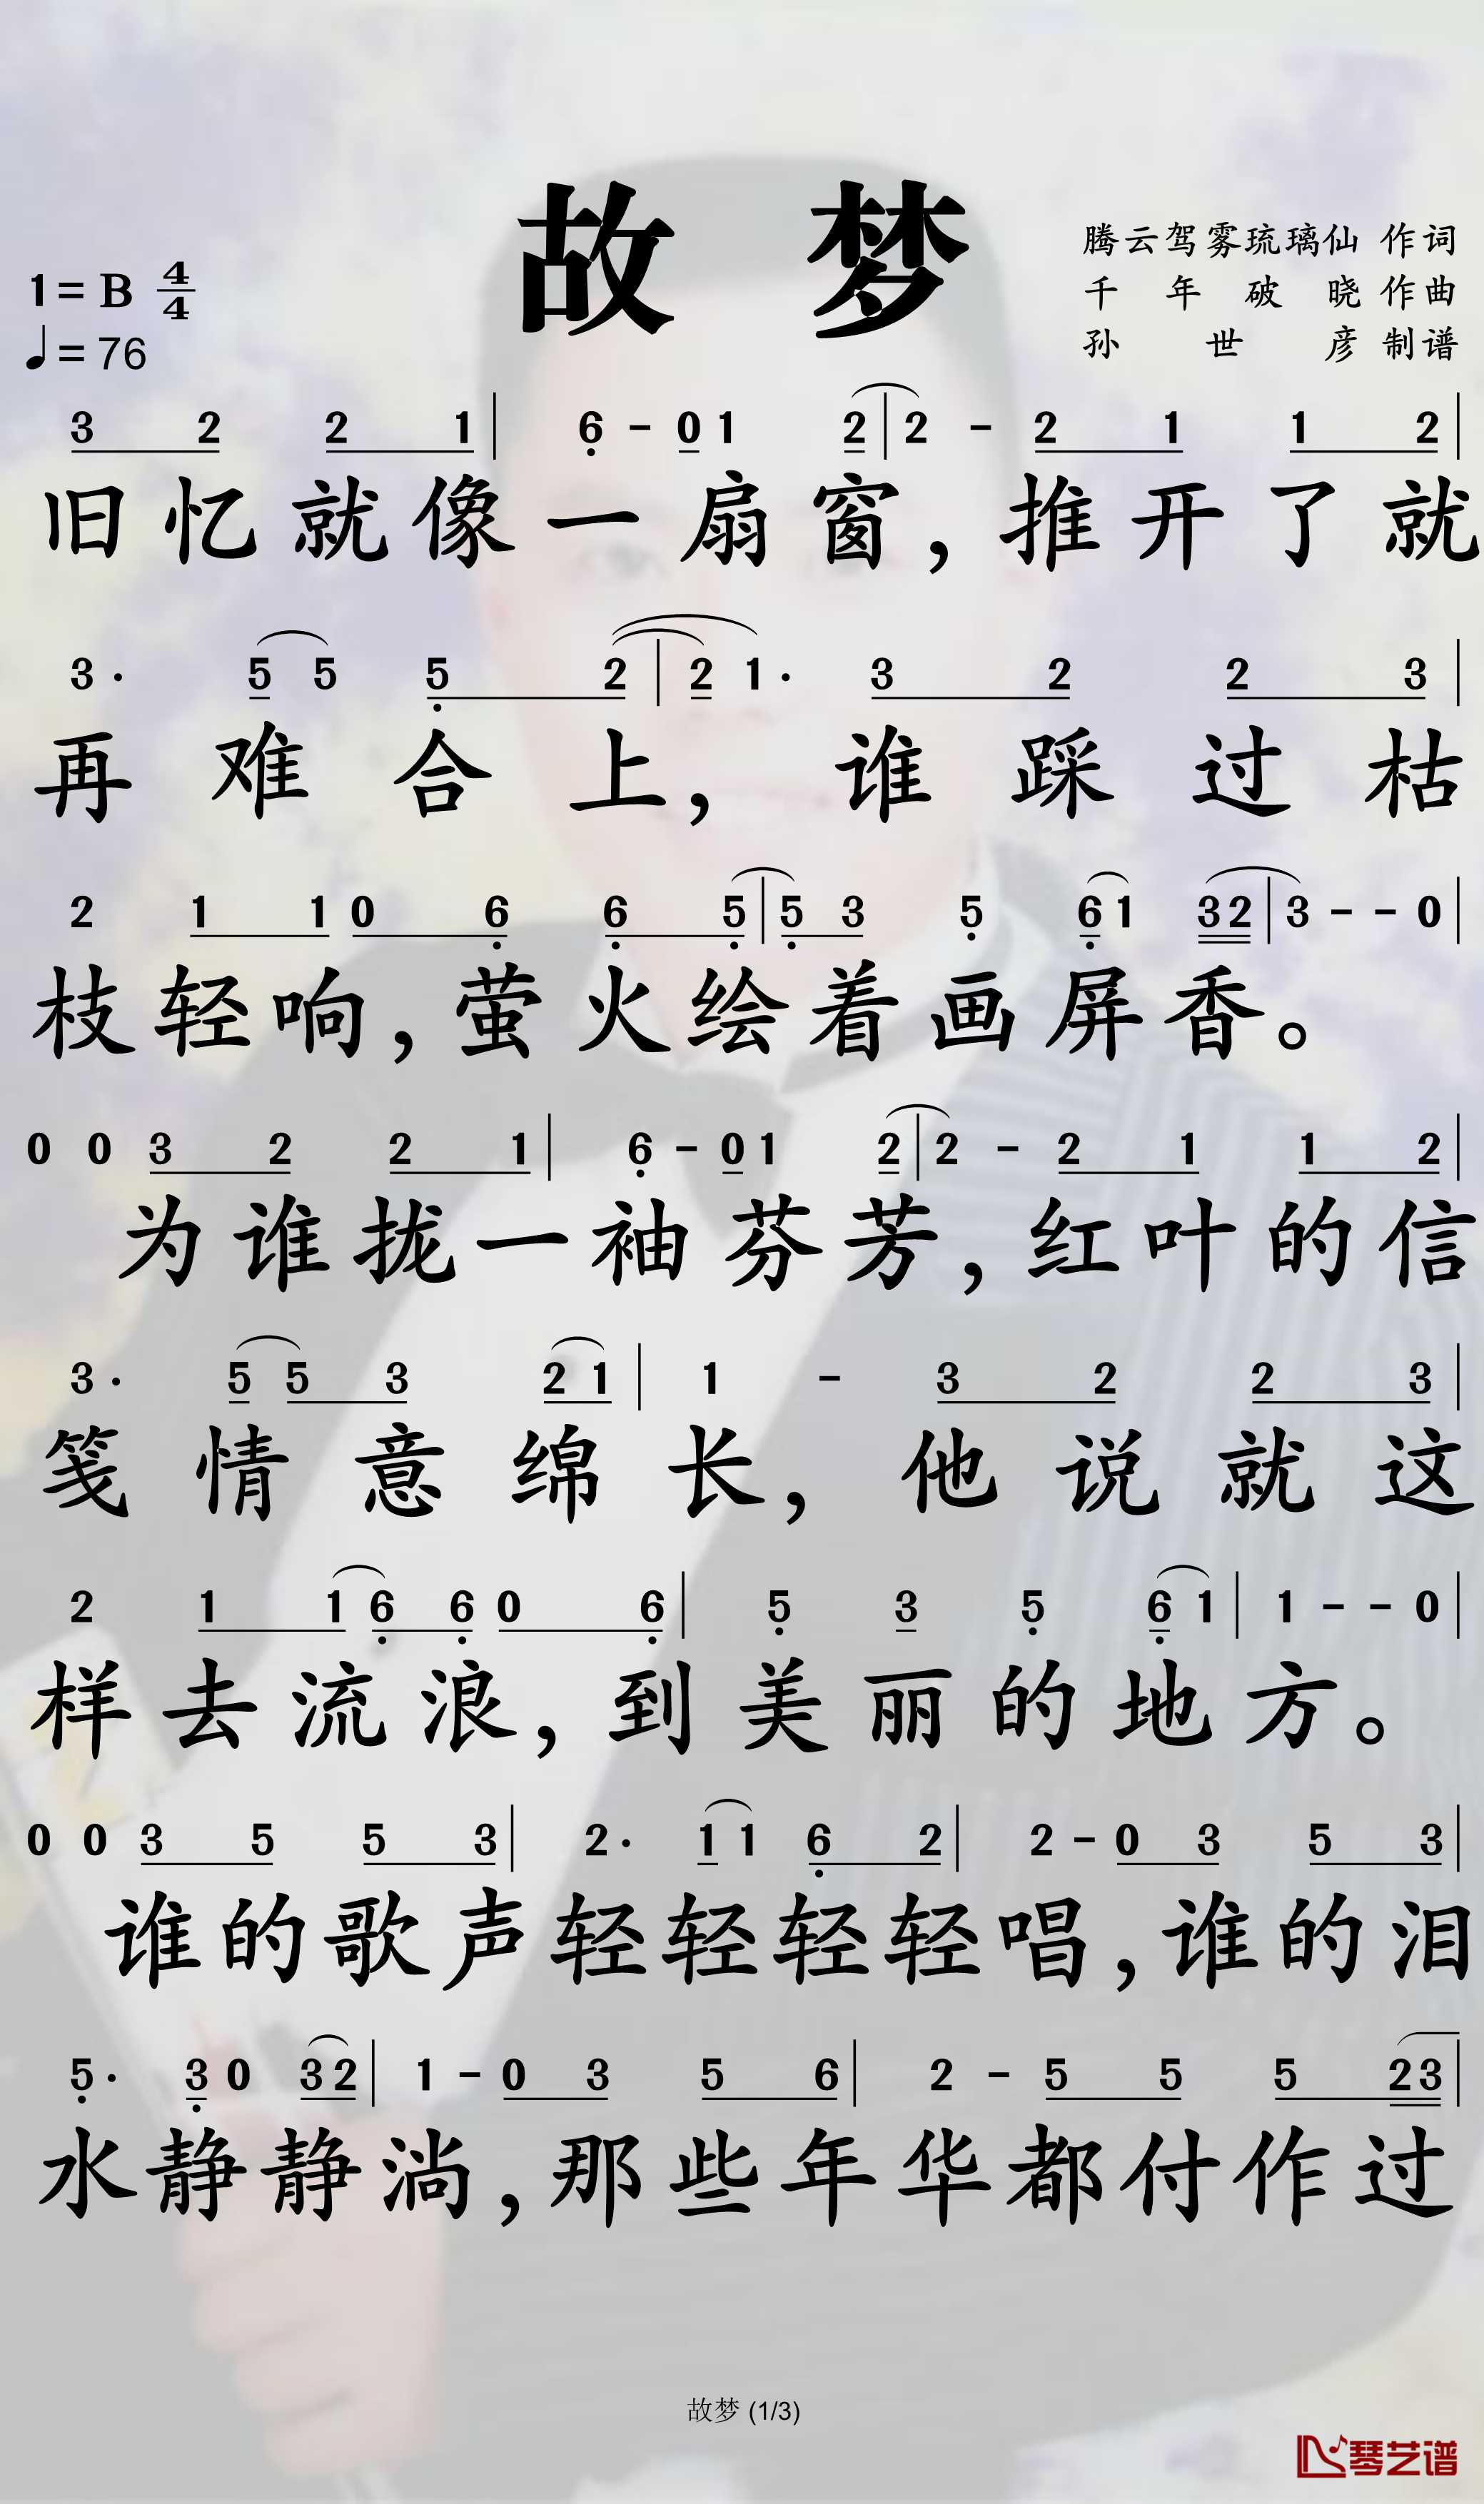 故 梦
1=B 4/4
♩=76
腾云驾雾琉璃仙 作词
千年破晓 作曲
孙世彦 制谱
3 2 2 1 | 6 - 0 1 2 | 2 - 2 1 1 2 |
旧忆就像一扇窗，推开了就
3· 5 5 5 2 | 2 1· 3 2 2 3 |
再难合上，谁踩过枯
2 1 1 0 6 6 5 | 5 3 5 6 1 3 2 | 3 - - 0 |
枝轻响，萤火绘着画屏香。
0 0 3 2 2 1 | 6 - 0 1 2 | 2 - 2 1 1 2 |
为谁拢一袖芬芳，红叶的信
3· 5 5 3 2 1 | 1 - 3 2 2 3 |
笺情意绵长，他说就这
2 1 1 6 6 0 6 | 5 3 5 6 1 | 1 - - 0 |
样去流浪，到美丽的地方。
0 0 3 5 5 3 | 2· 1 1 6 2 | 2 - 0 3 5 3 |
谁的歌声轻轻轻轻唱，谁的泪
5· 3 0 3 2 | 1 - 0 3 5 6 | 2 - 5 5 5 2 3 |
水静静淌，那些年华都付作过
故梦 (1/3)
琴艺谱